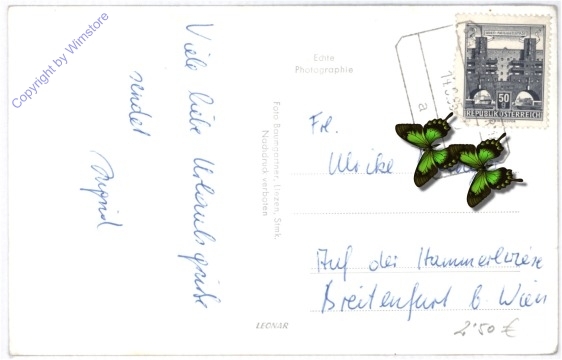 Copyright by Wimstore
Viele liebe Urlaubsgrüße
sendet
Ingrid
Echte
Photographie
Foto Baumgartner, Liezen, Stmk.
Nachdruck verboten
LEONAR
50
REPUBLIK ÖSTERREICH
Frl.
Ulrike
Auf der Hammerlwiese
Breitenfurt b Wien
2'50 €